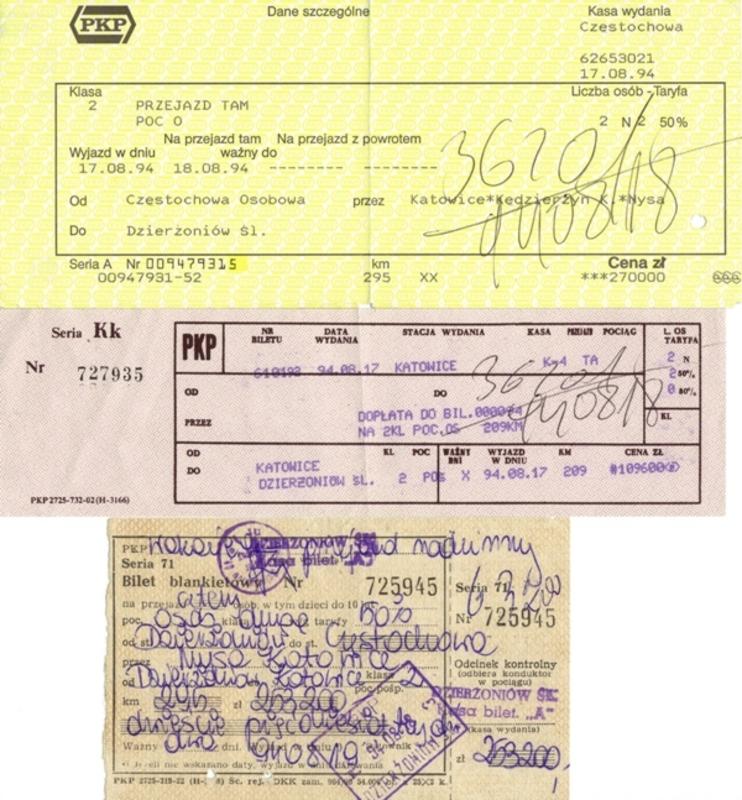 PKP
Dane szczególne
Kasa wydania
Częstochowa
62653021
17.08.94
Klasa
Liczba osób - Taryfa
2 PRZEJAZD TAM
POC O
2 N 2 50%
Na przejazd tam Na przejazd z powrotem
Wyjazd w dniu ważny do
17.08.94 18.08.94 -------- --------
3620/18
940818
Od Częstochowa Osobowa przez Katowice*Kędzierzyn K.*Nysa
Do Dzierżoniów Śl.
Seria A Nr 009479315 km Cena zł
00947931-52 295 XX ***270000
Seria Kk
Nr 727935
PKP
NR BILETU DATA WYDANIA STACJA WYDANIA KASA PRZEJAZD POCIĄG L. OS TARYFA
94.08.17 KATOWICE K-4 TA
2 N
2 50%
0 80%
OD DO
PRZEZ
DOPŁATA DO BIL.
NA 2KL POC.OS 209KM
KL
3620/18
940818
OD KL POC WAŻNY DNI WYJAZD W DNIU KM CENA ZŁ
DO
KATOWICE
DZIERŻONIÓW ŚL. 2 POS X 94.08.17 209 *109600
PKP 2725-732-02 (H-3166)
PKP
przejazd nadzimny
DZIERŻONIÓW ŚL.
Kasa bilet.
Seria 71
Bilet blankietowy Nr 725945
Seria 71
Nr 725945
na przejazd osób, w tym dzieci do 10 lat
poc. osób klasa taryfy 50%
od st. Dzierżoniów do st. Częstochowa
przez Nysa Katowice
Dzierżoniów Katowice klasa 2
poc. pośp.
km 295 zł 253200
Odcinek kontrolny
(odbiera konduktor
w pociągu)
DZIERŻONIÓW ŚL.
Kasa bilet. „A"
(kasa wydania)
zł 253200
dwieście pięćdziesiąt
Ważny dni. Wyjazd w dniu 940819
Jeżeli nie wskazano daty, wyjazd w dniu